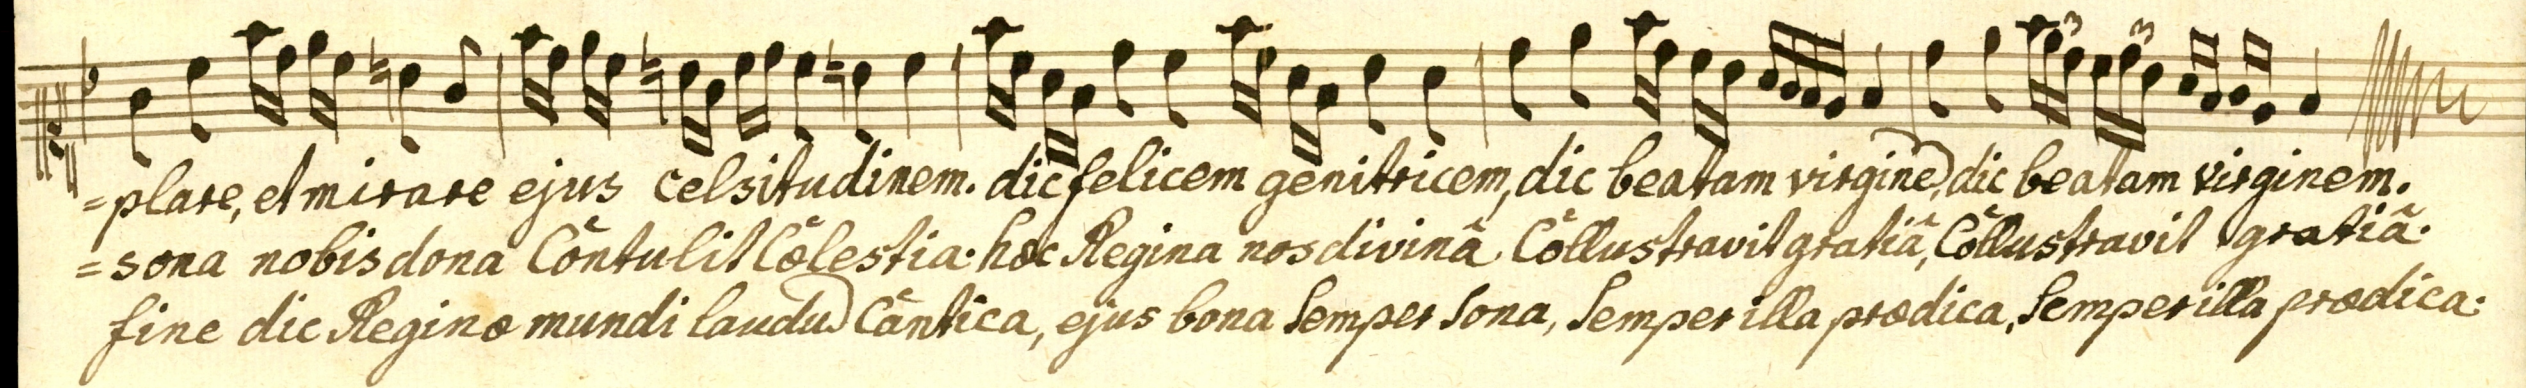 =plare, et mirare ejus celsitudinem. dic felicem genitricem, dic beatam virginē, dic beatam virginem.
=sona nobis dona Contulit Cœlestia. hæc Regina nos divinâ Collustravit gratiâ, Collustravit gratiâ.
fine dic Reginæ mundi laudū Cantica, ejus bona Semper Sona, Semper illa prædica, Semper illa prædica.